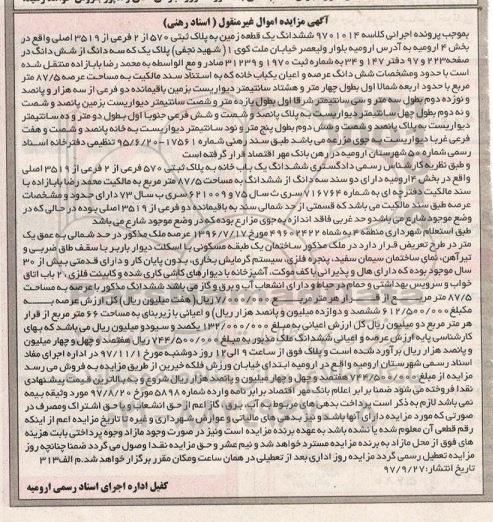 آگهی مزایده اموال غیرمنقول ( اسناد رهنی)
بموجب پرونده اجرائی کلاسه 9701014 ششدانگ یک قطعه زمین به پلاک ثبتی 570 از 2 فرعی از 3519 اصلی واقع در
بخش 4 ارومیه به آدرس ارومیه بلوار ولیعصر خیابان ملت کوی 1( شهید نجفی) پلاک یک که سه دانگ از شش دانگ در
صفحه 223 و 97 دفتر 147 و 34 به شماره ثبت 1970 و 31239 صادر و مع الواسطه به محمد رضا بابازاده منتقل شده
است با حدود ومشخصات شش دانگ عرصه و اعیان یکباب خانه که به استناد سند مالکیت به مساحت عرصه 87/5 متر
مربع با حدود اربعه شمالا اول بطول چهار متر و هشتاد سانتیمتر دیواریست بزمین باقیمانده دو فرعی از سه هزار و پانصد
و نوزده دوم بطول سه متر و سی سانتیمتر شرقا اول بطول یازده متر و شصت سانتیمتر دیواریست بزمین پانصد و شصت
و نه دوم بطول چهل سانتیمتر دیواریست به پلاک پانصد و شصت و شش فرعی جنوبا اول بطول دو متر و ده سانتیمتر
دیواریست به پلاک پانصد و شصت و شش دوم بطول پنج متر و نود سانتیمتر دیواریست به خانه پانصد و شصت و هفت
فرعی غربا دیواریست به جوی مزرعه می باشد طبق سند رهنی شماره 17561-95/6/20 تنظیمی دفترخانه اسناد
رسمی شماره 50 شهرستان ارومیه در رهن بانک مهر اقتصاد قرار گرفته است
و طبق نظریه کارشناس رسمی دادگستری ششدانگ یک باب خانه به پلاک ثبتی 570 فرعی از 2 فرعی از 3519 اصلی
واقع در بخش 4 ارومیه دارای دو سند سه دانگ از ششدانگ به مساحت 87/5 متر مربع به مالکیت محمد رضا بابازاده با
سند مالکیت دفترچه ای به شماره 716764 سری ث سال 75 و 621509 سری ب سال 73 دارای حدود و مشخصات
عرصه طبق سند مالکیت می باشد که قسمتی از حد شمالی سند به باقیمانده دو فرعی از 3519 اصلی بوده در حالی که در
وضع موجود شارع می باشد و حد غربی فاقد اندازه به جوی مزارع بوده که در وضع موجود شارع می باشد
طبق استعلام شهرداری منطقه 4 به شماه 49602422 مورخ 1396/7/17 عرصه ملک مذکور در حد شمالی به عمق یک
متر در طرح تعریض قرار دارد در ملک مذکور ساختمان یک طبقه مسکونی با اسکلت دیوار باربر با سقف طاق ضربی و
تیرآهن، نمای ساختمان سیمان سفید، پنجره فلزی، سیستم گرمایش بخاری، بدون پایان کار و دارای قدمتی بیش از 30
سال موجود بوده که دارای هال و پذیرائی با کف موکت، آشپزخانه با دیوارهای کاشی کاری شده و کابینت فلزی، 2 باب اتاق
خواب و سرویس بهداشتی و حمام در حیاط و دارای انشعاب آب و برق و گاز می باشد ششدانگ مذکور با عرصه به مساحت
87/5 متر مربع از قرار هر متر مربع 7/000/000 ریال( هفت میلیون ریال) کل ارزش عرصه به
مکبلغ 612/500/000( ششصد و دوازده میلیون و پانصد هزار ریال) و اعیانی با زیربنای به مساحت 66 متر مربع از قرار
هر متر مربع دو میلیون ریال کل ارزش اعیانی به مبلغ 132/000/000 یکصد و سیودو میلیون ریال می باشد که بهای
کارشناسی پایه ارزش عرصه و اعیانی ششدانگ ملک مزبور به مبلغ 744/500/000 ریال هفتصد و چهل و چهار میلیون
و پانصد هزار ریال برآورد شده است و پلاک فوق از ساعت 9 الی 12 روز دوشنبه مورخ 97/11/1 در اداره اجرای مفاد
اسناد رسمی شهرستان ارومیه واقع در ارومیه ابتدای خیابان ورزش فلکه خیرین از طریق مزایده به فروش می رسد
مزایده از مبلغ 744/500/000 هفتصد و چهل و چهار میلیون و پانصد هزار ریال شروع و به بالاترین قیمت پیشنهادی
نقدا فروخته می شود ضمنا برابر اعلام بانک مهر اقتصاد برابر نامه وارده شماره 5898 مورخ 97/8/20 مورد وثیقه بیمه
نمی باشد لازم به ذکر است پرداخت بدهی های مربوط به آب، برق، گاز اعم از حق انشعاب و یا حق اشتراک ومصرف در
صورتی که مورد مزایده دارای آنها باشد و نیز بدهی های مالیاتی و عوارض شهرداری و غیره تا تاریخ مزایده اعم از اینکه
رقم قطعی آن معلوم شده یا نشده باشد به عهده برنده مزایده است ونیز در صورت وجود مازاد وجوه پرداختی بابت هزینه
های فوق از محل مازاد به برنده مزایده مسترد خواهد شد و نیم عشر و حق مزایده نقدا وصول می گردد ضمنا چنانچه روز
مزایده تعطیل رسمی گردد مزایده روز اداری بعد از تعطیلی در همان ساعت ومکان مقرر برگزار خواهد شد.م الف 313
تاریخ انتشار: 97/9/27
کفیل اداره اجرای اسناد رسمی ارومیه